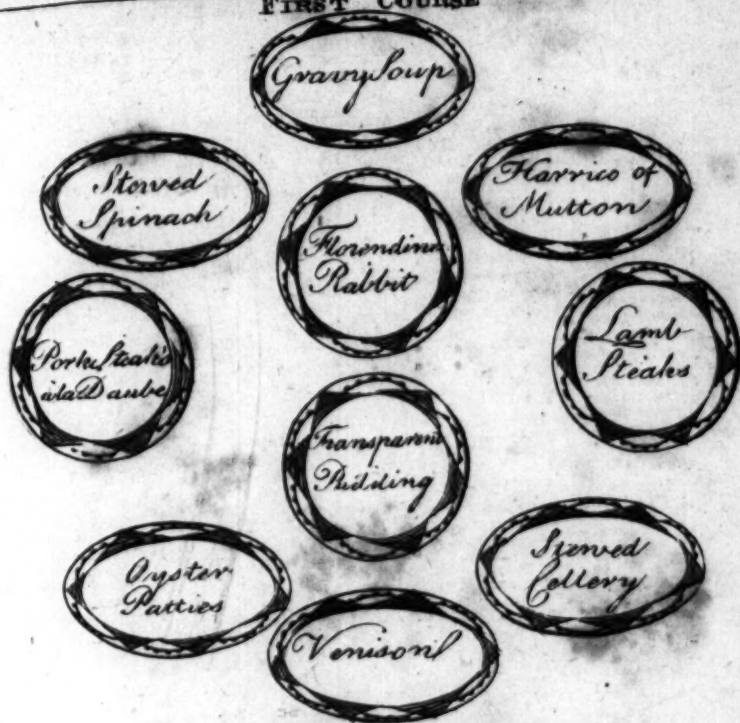 FIRST COURSE
Gravy Soup
Stewed
Spinach
Harrico of
Mutton
Florendine
Rabbit
Pork Steaks
à la Daube
Lamb
Steaks
Transparent
Pudding
Oyster
Patties
Stewed
Cellery
Venison